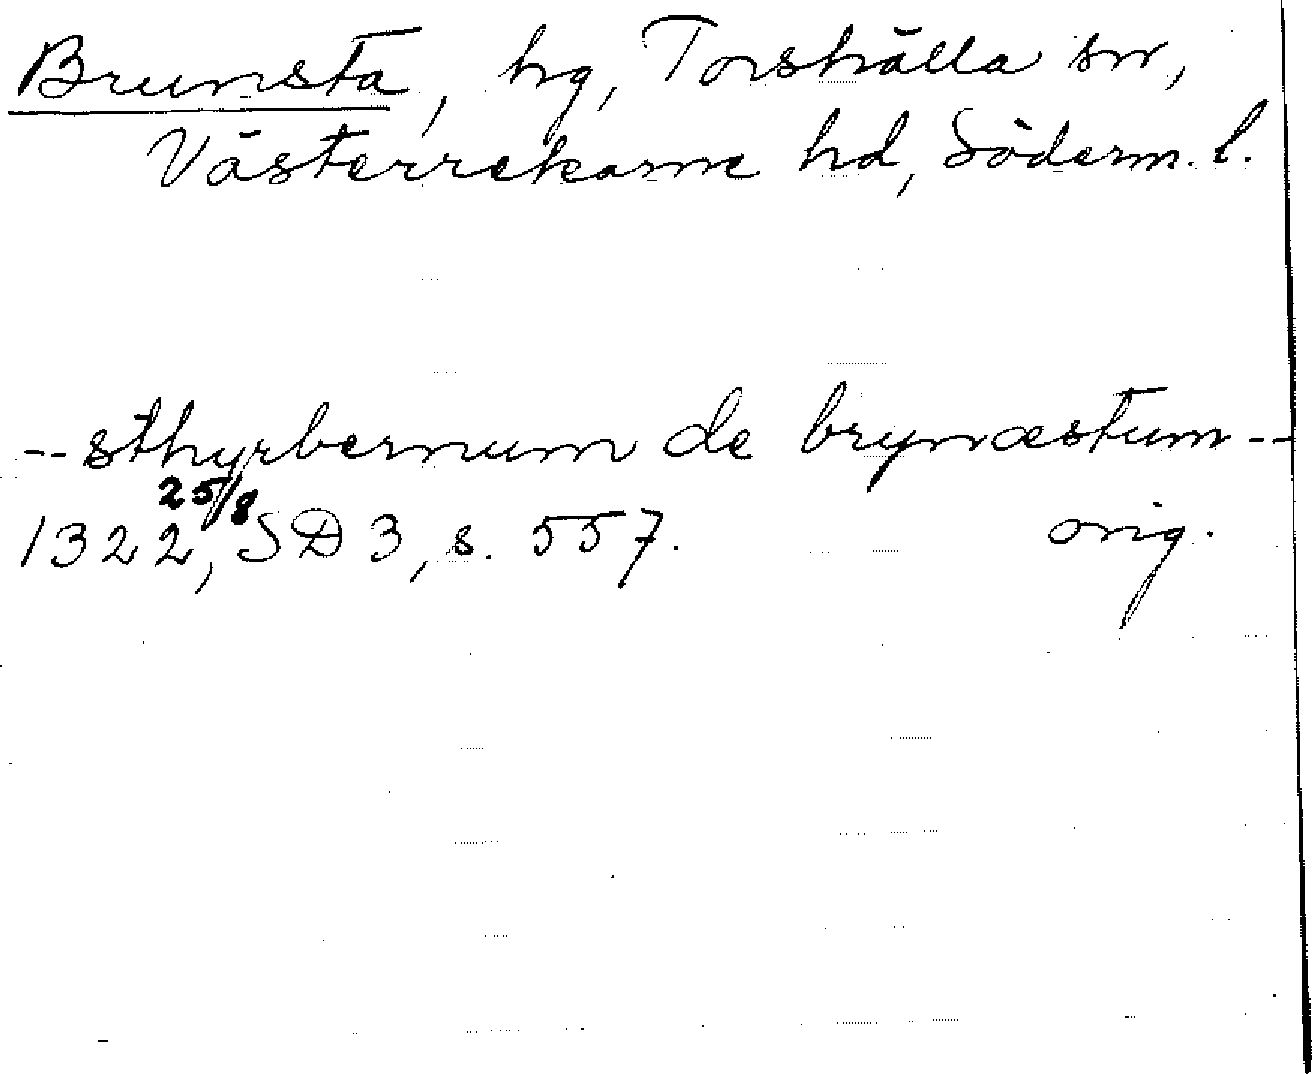 Brunsta, hg, Torshälla sn,
Västerrekarne hd, Söderm. l.
--sthyrbernum de brynæstum--
25/8
1322, SD 3, s. 557. orig.